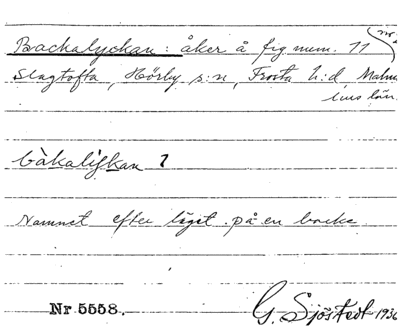 Backalyckan: åker å fig num. 11
Slagtofta, Hörby s:n, Frosta h:d Malmö
hus län.
bàkalyʃkan
Namnet efter läget på en backe.
Nr 5558.
G. Sjöstedt 1936